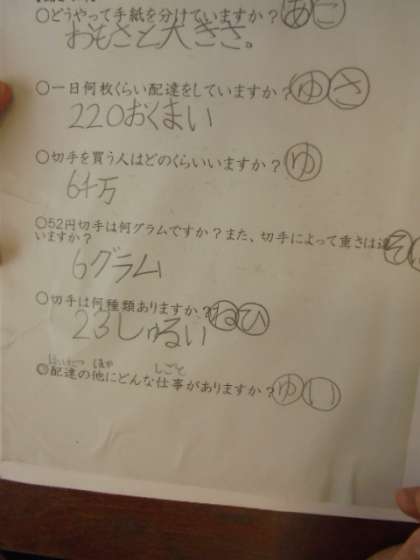 ○どうやって手紙を分けていますか？ あ こ
おもさと大きさ。
○一日何枚くらい配達をしていますか？ ゆ さ
220おくまい
○切手を買う人はどのくらいいますか？ ゆ
6千万
○52円切手は何グラムですか？また、切手によって重さは違 そ
いますか？
6グラム
○切手は何種類ありますか？ ね ひ
23しゅるい
はいたつ ほか しごと
◎配達の他にどんな仕事がありますか？ ゆ い